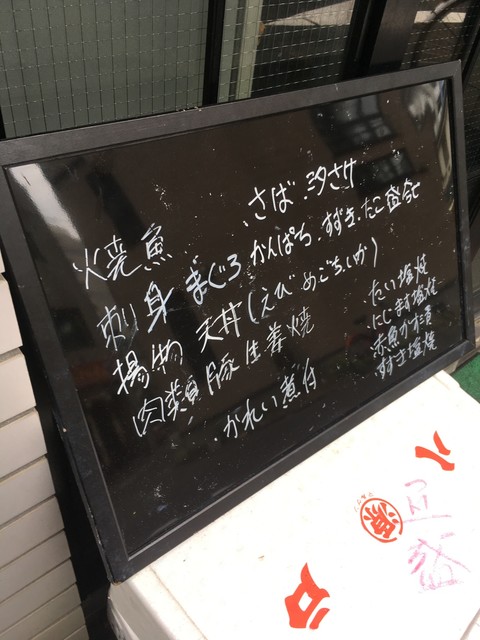 焼魚 さば.汐さけ
刺身 まぐろ かんぱち.すずき.たこ盛合セ
揚物 天丼(えび めごち.いか)
肉類 豚生姜焼
.かれい煮付
.たい塩焼
.にじます塩焼
.赤魚かす漬
すずき塩焼
八